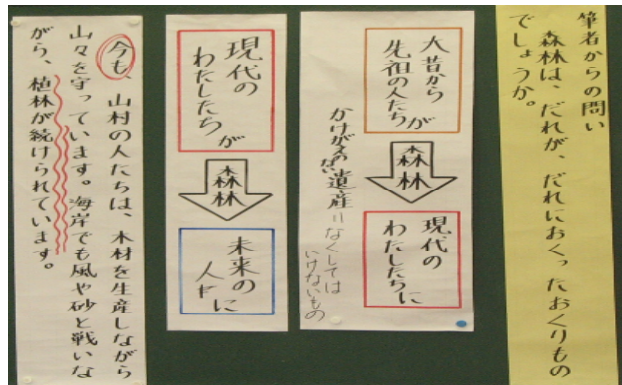 筆者からの問い
森林は、だれが、だれにおくったおくりもの
でしょうか。
大昔から
先祖の人たち
が
森林
現代の
わたしたちに
かけがえのない遺産=なくしては
いけないもの
現代の
わたしたち
が
森林
未来の
人々に
今も、山村の人たちは、木材を生産しながら
山々を守っています。海岸でも風や砂と戦いな
がら、植林が続けられています。